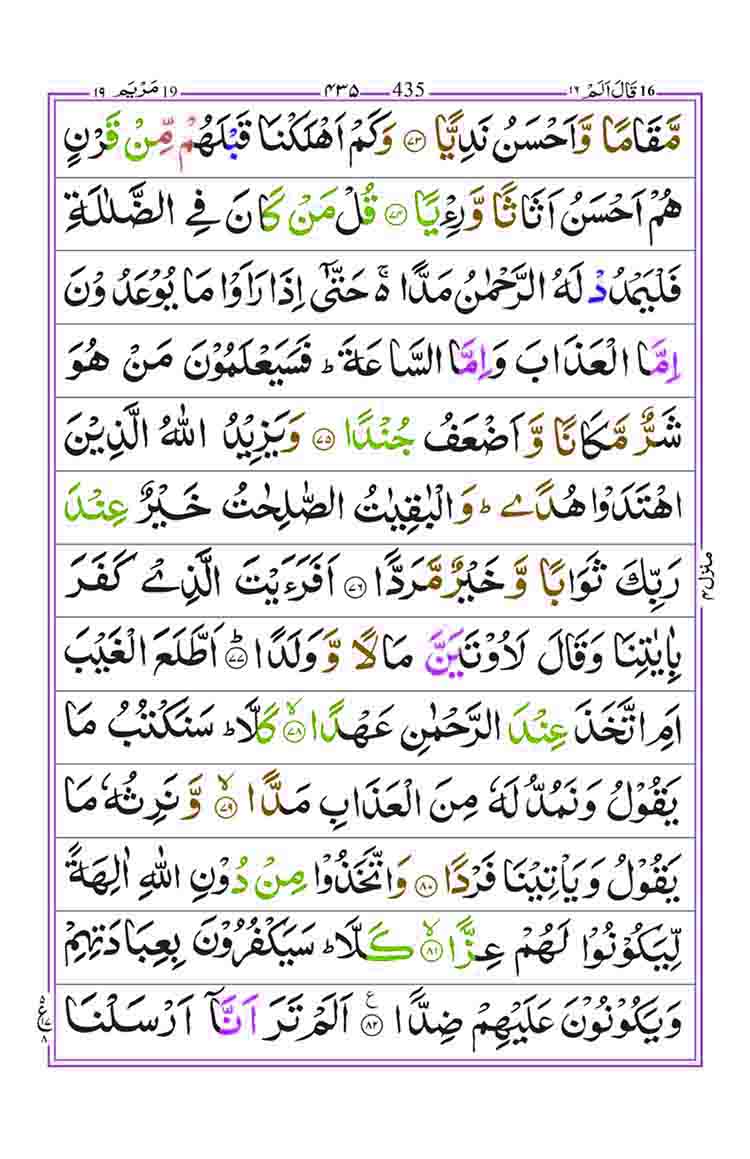 16 قَالَ اَلَمْ ۱۶ 435 ۴۳۵ 19 مَرْيَم ۱۹
مَّقَامًا وَّاَحْسَنُ نَدِيًّا ۝۷۳ وَكَمْ اَهْلَكْنَا قَبْلَهُمْ مِّنْ قَرْنٍ
هُمْ اَحْسَنُ اَثَاثًا وَّرِءْيًا ۝۷۴ قُلْ مَنْ كَانَ فِي الضَّلٰلَةِ
فَلْيَمْدُدْ لَهُ الرَّحْمٰنُ مَدًّا ۚ۬ حَتّٰۤى اِذَا رَاَوْا مَا يُوْعَدُوْنَ
اِمَّا الْعَذَابَ وَاِمَّا السَّاعَةَ ؕ فَسَيَعْلَمُوْنَ مَنْ هُوَ
شَرٌّ مَّكَانًا وَّاَضْعَفُ جُنْدًا ۝۷۵ وَيَزِيْدُ اللّٰهُ الَّذِيْنَ
اهْتَدَوْا هُدًے ؕ وَالْبٰقِيٰتُ الصّٰلِحٰتُ خَيْرٌ عِنْدَ
رَبِّكَ ثَوَابًا وَّخَيْرٌ مَّرَدًّا ۝۷۶ اَفَرَءَيْتَ الَّذِيْ كَفَرَ
بِاٰيٰتِنَا وَقَالَ لَاُوْتَيَنَّ مَالًا وَّوَلَدًا ۝۷۷ؕ اَطَّلَعَ الْغَيْبَ
اَمِ اتَّخَذَ عِنْدَ الرَّحْمٰنِ عَهْدًا ۝۷۸ۙ كَلَّا ؕ سَنَكْتُبُ مَا
يَقُوْلُ وَنَمُدُّ لَهٗ مِنَ الْعَذَابِ مَدًّا ۝۷۹ۙ وَّنَرِثُهٗ مَا
يَقُوْلُ وَيَاْتِيْنَا فَرْدًا ۝۸۰ وَاتَّخَذُوْا مِنْ دُوْنِ اللّٰهِ اٰلِهَةً
لِّيَكُوْنُوْا لَهُمْ عِزًّا ۝۸۱ۙ كَلَّا ؕ سَيَكْفُرُوْنَ بِعِبَادَتِهِمْ
وَيَكُوْنُوْنَ عَلَيْهِمْ ضِدًّا ۝۸۲ ع اَلَمْ تَرَ اَنَّاۤ اَرْسَلْنَا
منزل ۴
۵ ع ۱۷ ۸